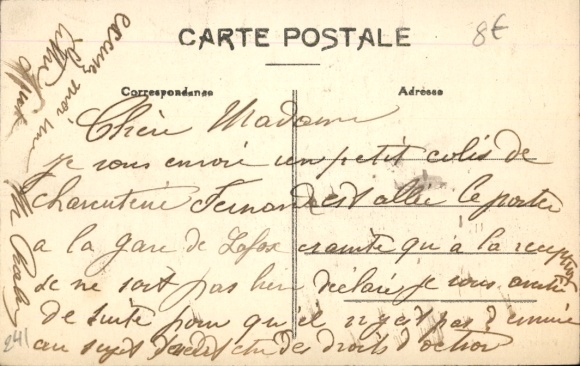 CARTE POSTALE
8€
Correspondance
Adresse
Chère Madame
je vous envoie un petit colis de
charcuterie Fernand est allée le porter
a la gare de Lafox crainte qu'a la reception
se ne soit pas bien déclaré je vous
de suite pour qu'el n'y est pas d'ennuie
au sujet des droits d'octroi
excusez moi
241